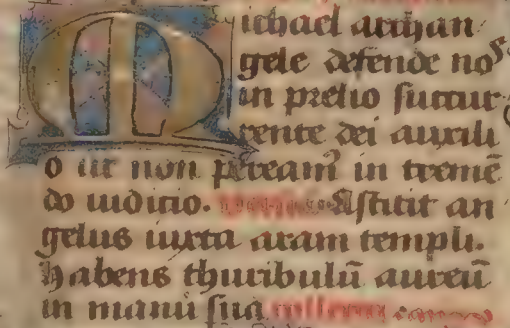 Michael archan
gele defende nos
in prelio succur
rente dei auxili
o ut non peream' in tremē
do iudicio. Astitit an
gelus iuxta aram templi.
habens thuribulū aureū
in manu sua